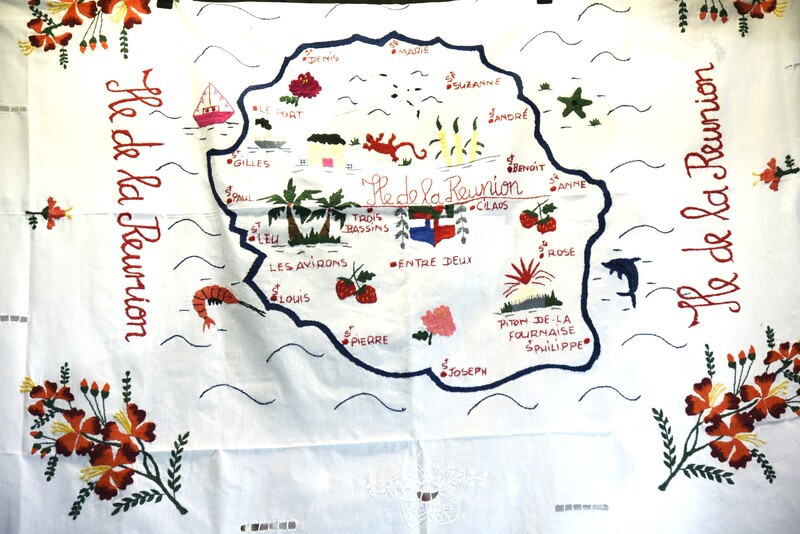 Ile de la Reunion
St DENIS
Ste MARIE
Ste SUZANNE
LE PORT
St ANDRÉ
St GILLES
St BENOIT
St PAUL
Ile de la Reunion
Ste ANNE
CILAOS
TROIS
BASSINS
St LEU
Ste ROSE
LES AVIRONS
ENTRE DEUX
St LOUIS
PITON DE-LA
FOURNAISE
St PIERRE
St PHILIPPE
St JOSEPH
Ile de la Reunion